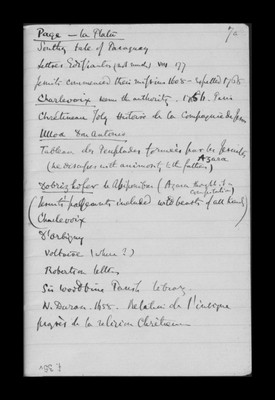 Page - La Plata
Southey tale of Paraguay
Lettres Edifiantes (and marks) VIII 177
Jesuits commenced their missions 1608 - expelled 1768
Charlevoix seems the authority. 1756. Paris
Chrétineau Joly Histoire de la Compagnie de Jésus
Ulloa Don Antonio
Tableau des Peuplades formées par les Jesuits
(he disagrees with animosity of the fathers) Azara
Dobrizhofer le Abiponibus (Azara thought it a compilation)
(Jesuits' pageants included with beasts of all kinds)
Charlevoix
D'Orbigny
Voltaire (where?)
Robertson letters
Sir Woodbine Parish library
N. Duran. 1638. Relation de l'insigne
progrès de la religion Chrétienne